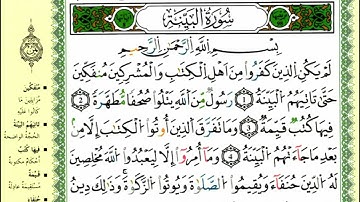 سُورَةُ البَيِّنَةِ
بِسْمِ اللَّهِ الرَّحْمَٰنِ الرَّحِيمِ
لَمْ يَكُنِ الَّذِينَ كَفَرُوا مِنْ أَهْلِ الْكِتَابِ وَالْمُشْرِكِينَ مُنفَكِّينَ
حَتَّىٰ تَأْتِيَهُمُ الْبَيِّنَةُ ١ رَسُولٌ مِّنَ اللَّهِ يَتْلُوا صُحُفًا مُّطَهَّرَةً ٢
فِيهَا كُتُبٌ قَيِّمَةٌ ٣ وَمَا تَفَرَّقَ الَّذِينَ أُوتُوا الْكِتَابَ إِلَّا مِن
بَعْدِ مَا جَاءَتْهُمُ الْبَيِّنَةُ ٤ وَمَا أُمِرُوا إِلَّا لِيَعْبُدُوا اللَّهَ مُخْلِصِينَ
لَهُ الدِّينَ حُنَفَاءَ وَيُقِيمُوا الصَّلَاةَ وَيُؤْتُوا الزَّكَاةَ وَذَٰلِكَ دِينُ
مُنفَكِّينَ
تَأْتِيَهُمُ الْبَيِّنَةُ
فِيهَا كُتُبٌ
قَيِّمَةٌ
حُنَفَاءَ